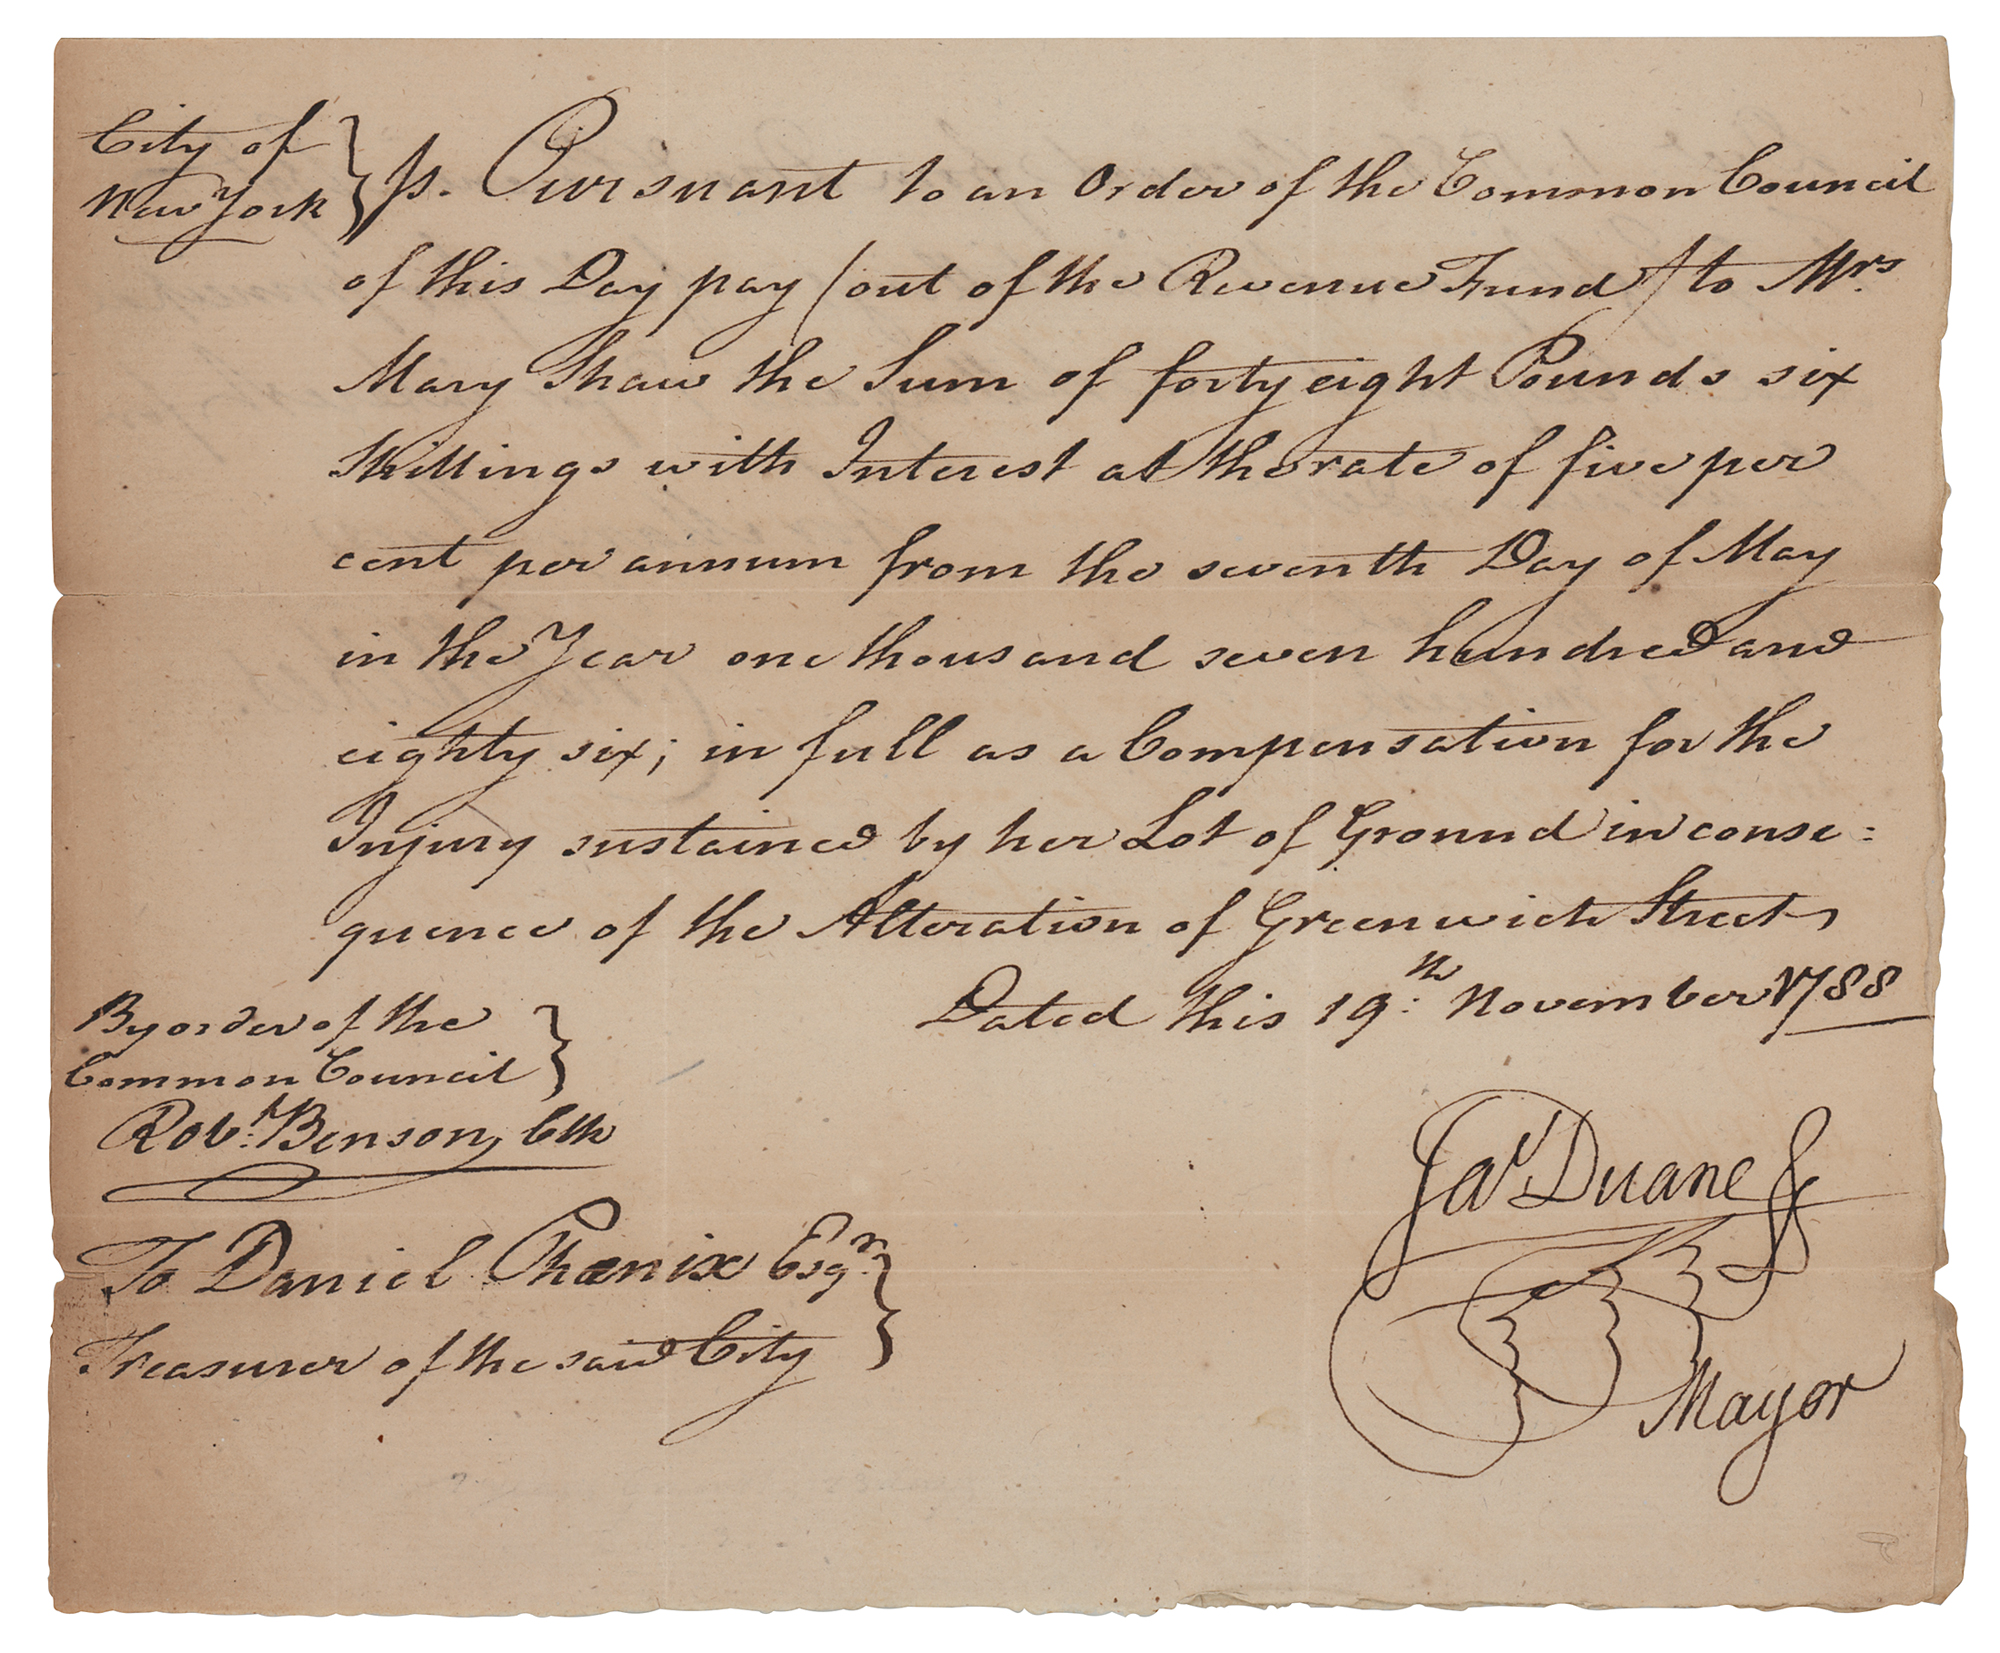 City of
New York } ss. Pursuant to an Order of the Common Council
of this Day pay (out of the Revenue Fund) to Mrs.
Mary Shaw the Sum of forty eight Pounds six
Shillings with Interest at the rate of five per
cent per annum from the seventh Day of May
in the Year one thousand seven hundred and
eighty six; in full as a Compensation for the
Injury sustained by her Lot of Ground in conse=
quence of the Alteration of Greenwich Street,
Dated this 19:th November 1788
By order of the
Common Council }
Rob:t Benson, Clk
Jas Duane
Mayor
To Daniel Phœnix Esqr.
Treasurer of the said City }